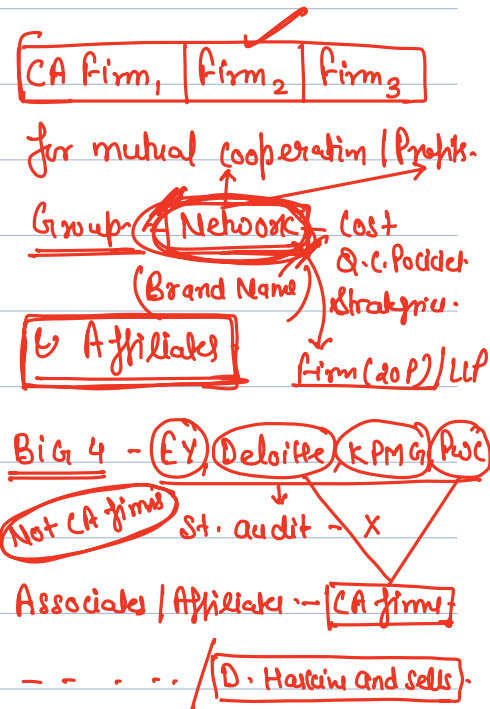 CA Firm1 | Firm2 | Firm3
for mutual cooperation / Profits.
Group - Network - Cost
Q.C. Policies
(Brand Name) Strategies.
↳ Affiliates
Firm (20P) / LLP
BIG 4 - EY, Deloitte, KPMG, PwC
Not CA firms St. audit - X
Associates / Affiliates - CA firms
- - - - - / D. Haskins and sells.